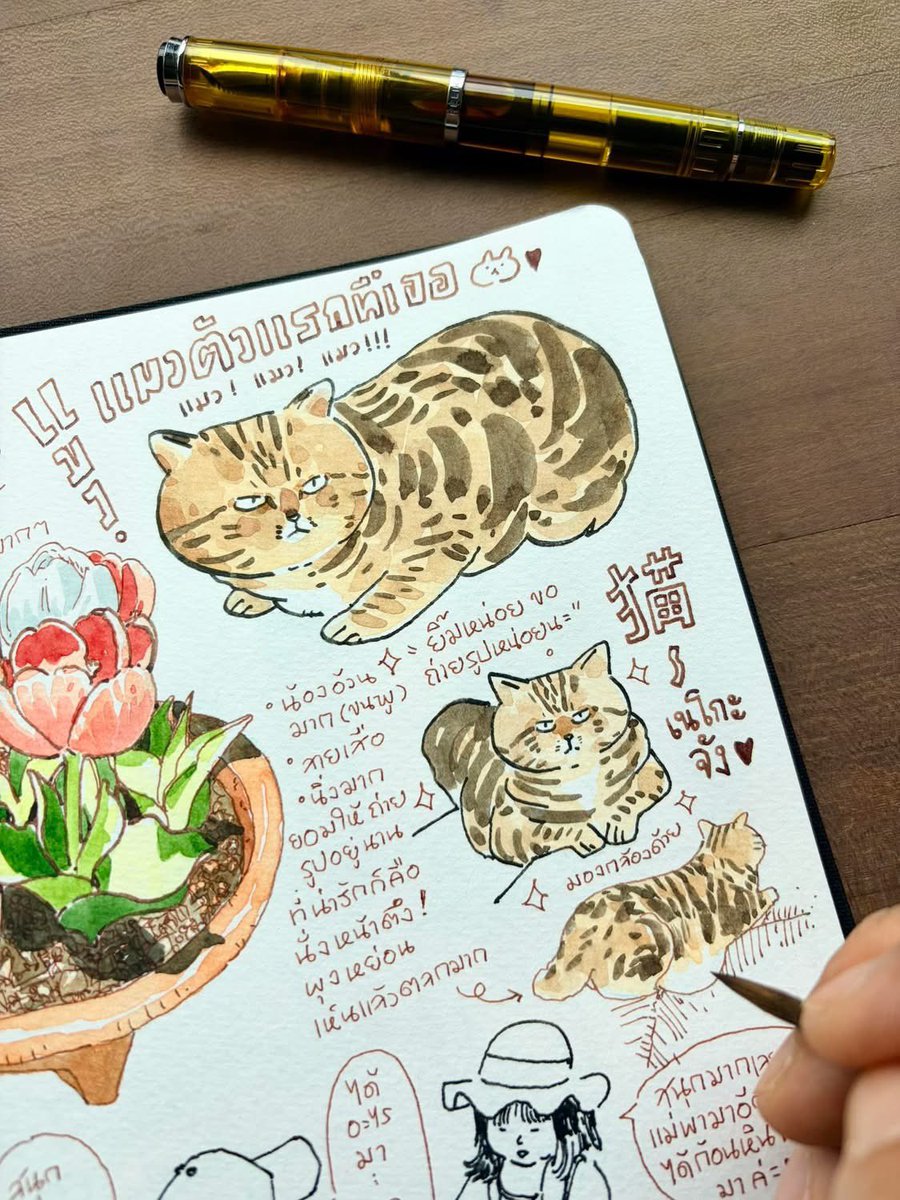 แมวตัวแรกที่เจอ
แมว! แมว! แมว!!!
"ยิ้มหน่อย ขอ
ถ่ายรูปหน่อยนะ"
• น้องอ้วน
มาก (ขนฟู)
• ลายเสือ
• นิ่งมาก
ยอมให้ถ่าย
รูปอยู่นาน
ที่น่ารักก็คือ
นั่งหน้าตึง!
พุงหย่อน
เห็นแล้วตลกมาก
猫
~
เนโกะ
จัง
มองกล้องด้วย
ได้
อะไร
มา
สนุก
สนุกมากเลย
แม่พามา
ได้ก้อนหิน
มาค่ะ"